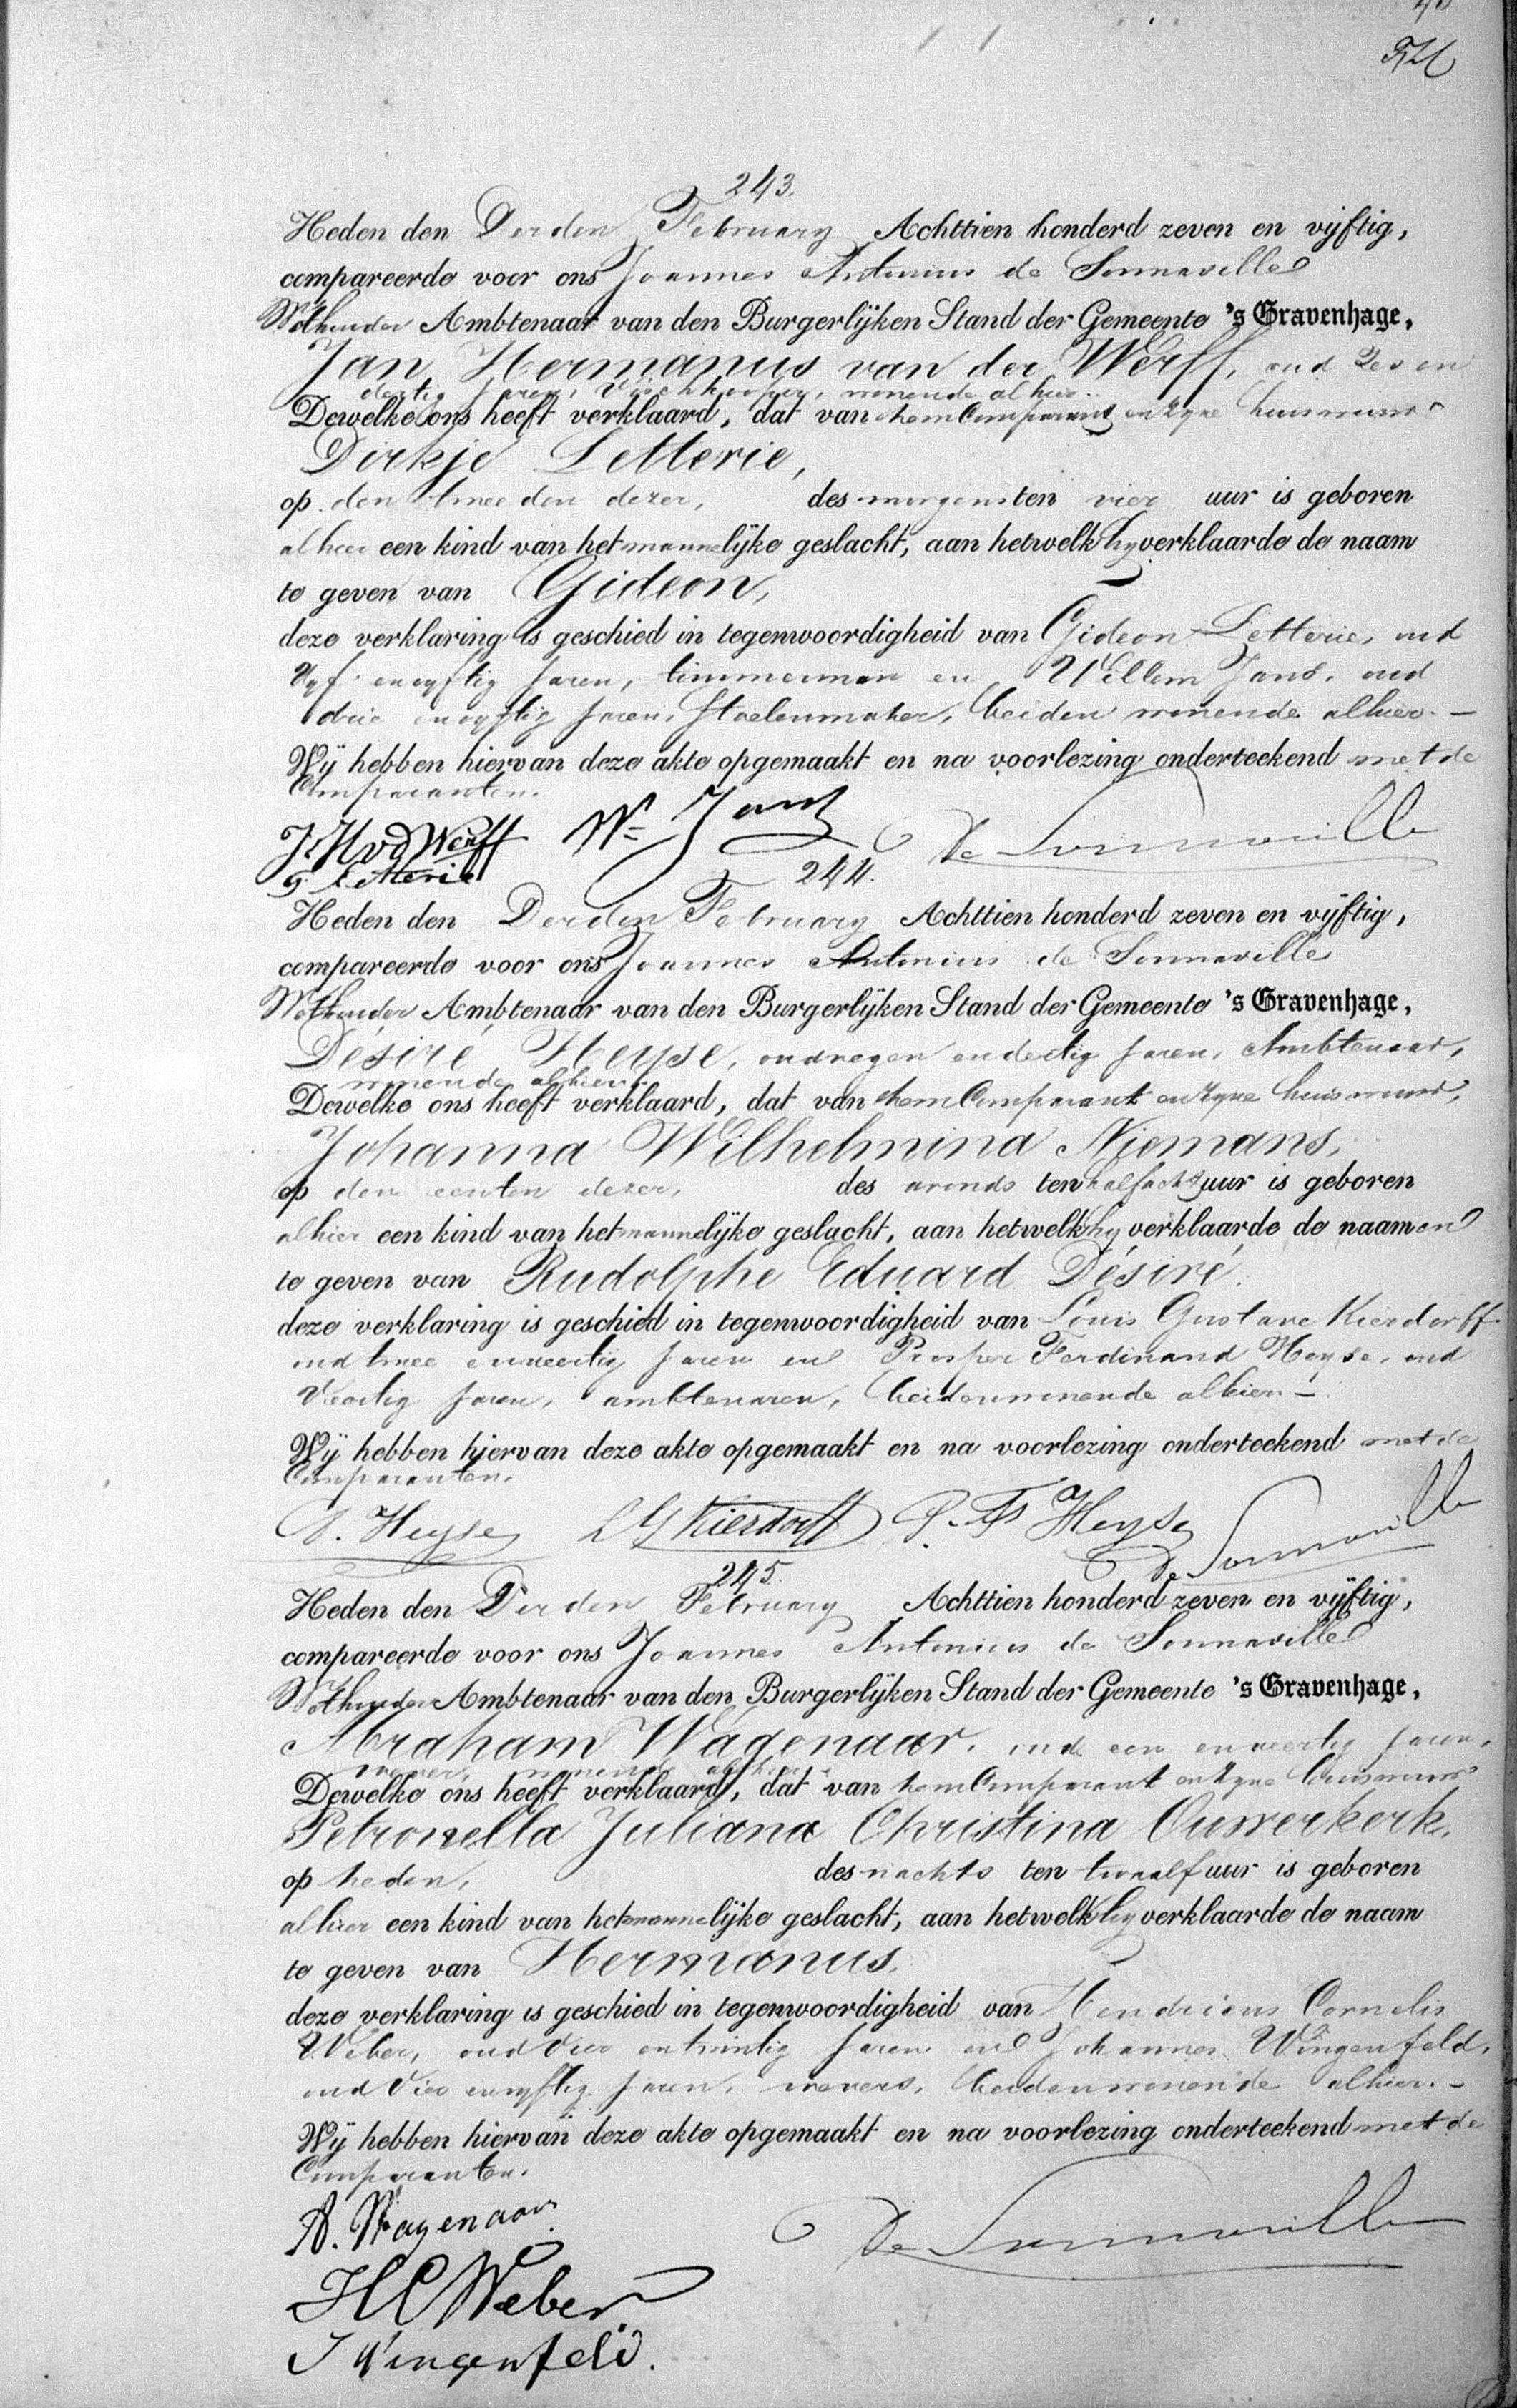 243.
Heden den Derden February Achttien honderd zeven en vijftig,
compareerde voor ons Joannes Antonius de Sonnaville
Wethouder Ambtenaar van den Burgerlijken Stand der Gemeente 's Gravenhage,
Jan Hermanus van der Werff, oud zes en
dertig jaren, Vischkooper, wonende alhier.
Dewelke ons heeft verklaard, dat van hem Comparant en zijne huisvrouw
Dirkje Letterie,
op den tweeden dezer, des morgens ten vier uur is geboren
alhier een kind van het mannelijke geslacht, aan hetwelk hij verklaarde de naam
te geven van Gideon,
deze verklaring is geschied in tegenwoordigheid van Gideon Letterie, oud
Vijf en vijftig jaren, timmerman en Willem Jans, oud
drie en vijftig jaren, Stoelenmaker, beiden wonende alhier. –
Wij hebben hiervan deze akte opgemaakt en na voorlezing onderteekend met de
Comparanten.
J. H vd Werff Wm Jans de Sonnaville
G. Letterie
244.
Heden den Derden February Achttien honderd zeven en vijftig,
compareerde voor ons Joannes Antonius de Sonnaville
Wethouder Ambtenaar van den Burgerlijken Stand der Gemeente 's Gravenhage,
Désiré Heyse, oud negen en dertig jaren, Ambtenaar,
wonende alhier.
Dewelke ons heeft verklaard, dat van hem Comparant en zijne huisvrouw,
Johanna Wilhelmina Niemans,
op den eersten dezer, des avonds ten half acht uur is geboren
alhier een kind van het mannelijke geslacht, aan hetwelk hij verklaarde de naamen
te geven van Rudolphe Eduard Désiré.
deze verklaring is geschied in tegenwoordigheid van Louis Gustave Kierdorff
oud twee en veertig jaren en Prosper Ferdinand Heyse, oud
Veertig jaren, ambtenaren, beiden wonende alhier –
Wij hebben hiervan deze akte opgemaakt en na voorlezing onderteekend met de
Comparanten.
D. Heyse L G Kierdorff P. Fd Heyse de Sonnaville
245.
Heden den Derden February Achttien honderd zeven en vijftig,
compareerde voor ons Joannes Antonius de Sonnaville
Wethouder Ambtenaar van den Burgerlijken Stand der Gemeente 's Gravenhage,
Abraham Wagenaar, oud een en veertig jaren,
wever, wonende alhier
Dewelke ons heeft verklaard, dat van hem Comparant en zijne huisvrouw
Petronella Juliana Christina Ouwerkerk,
op heden, des nachts ten twaalf uur is geboren
alhier een kind van het mannelijke geslacht, aan hetwelk hij verklaarde de naam
te geven van Hermanus,
deze verklaring is geschied in tegenwoordigheid van Hendricus Cornelis
Weber, oud Vier en twintig jaren en Johannes Wingenfeld,
oud Vier en vijftig jaren, wevers, beiden wonende alhier. –
Wij hebben hiervan deze akte opgemaakt en na voorlezing onderteekend met de
Comparanten.
A. Wagenaar de Sonnaville
H C Weber
J Wingenfeld.